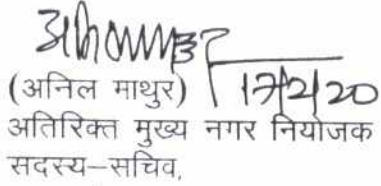 (अनिल माथुर) 17/2/20
अतिरिक्त मुख्य नगर नियोजक
सदस्य–सचिव,